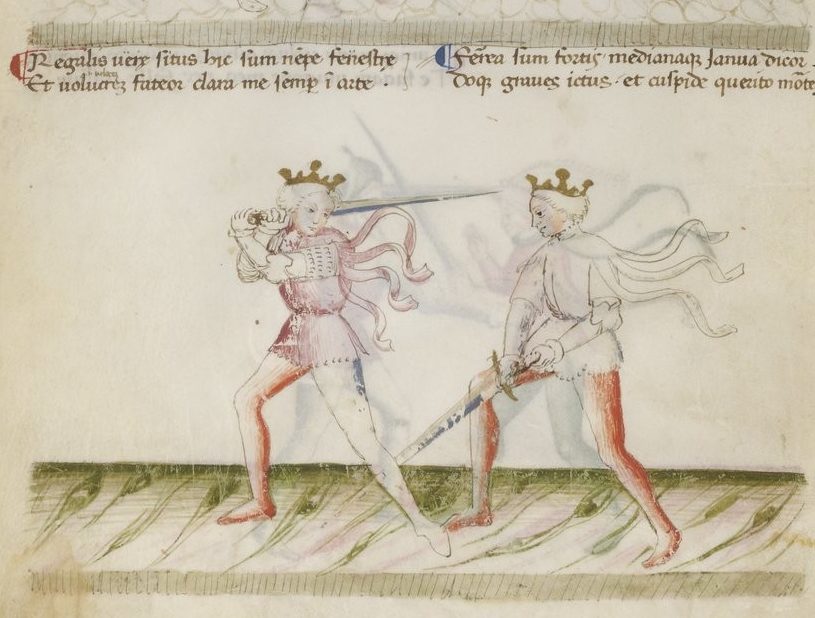 ¶ Regalis uere situs hic sum nēpe fenestre
Et uolucrez fateor clara me semꝑ ī arte ·
¶ Fērea sum fortis medianaqꝫ Janua dicor ·
Doqꝫ graues ictus · et cuspide querito